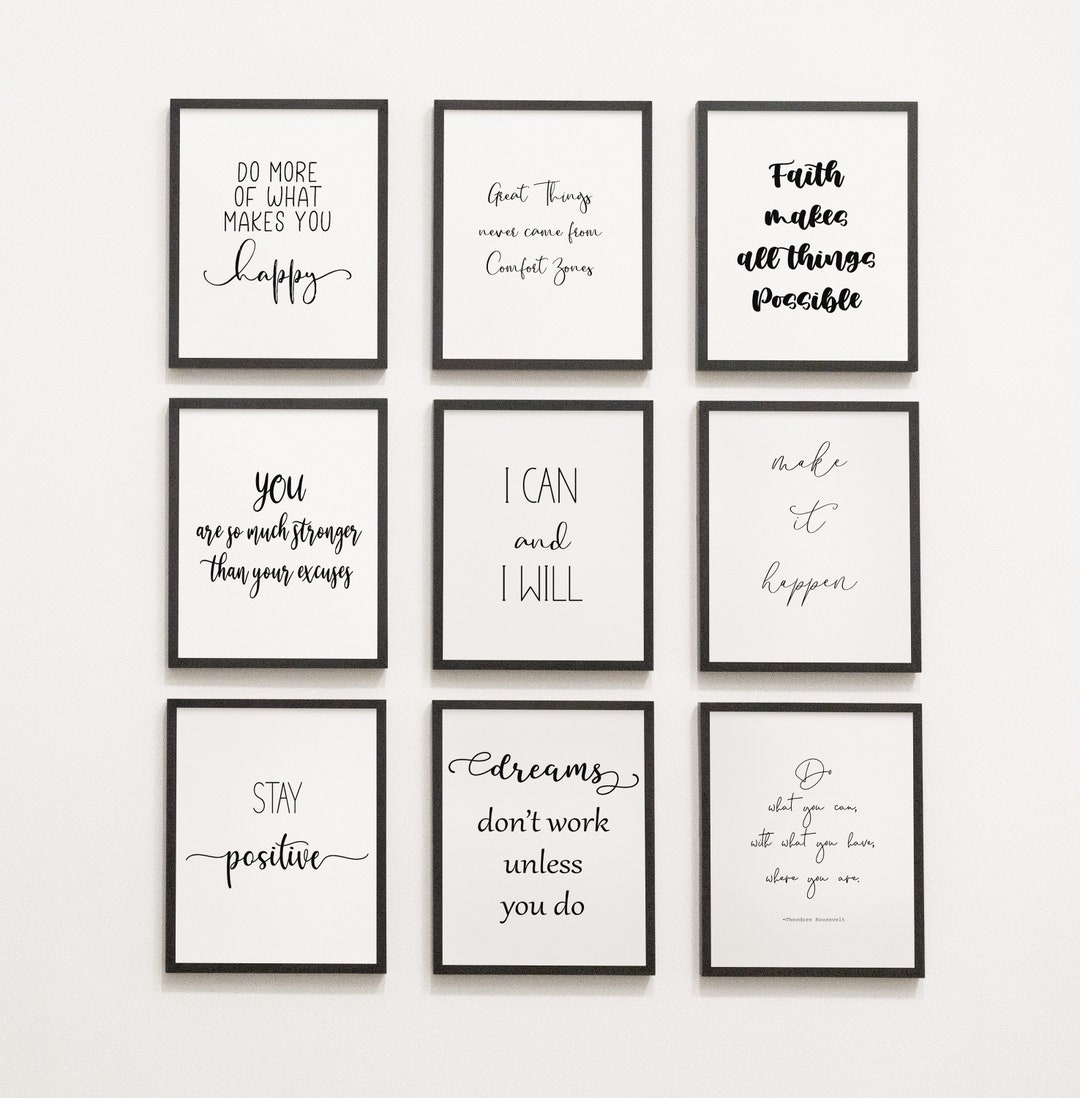 DO MORE
OF WHAT
MAKES YOU
happy
Great Things
never came from
Comfort Zones
Faith
makes
all things
Possible
YOU
are so much stronger
than your excuses
I CAN
and
I WILL
make
it
happen
STAY
positive
dreams
don't work
unless
you do
Do
what you can,
with what you have,
where you are.
-Theodore Roosevelt